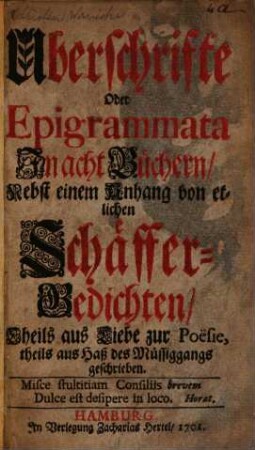 Uberschriffte
Oder
Epigrammata
In acht Büchern/
Nebst einem Anhang von et-
lichen
Schäffer-
Gedichten/
Theils aus Liebe zur Poësie,
theils aus Haß des Müssiggangs
geschrieben.
Misce stultitiam Consiliis brevem
Dulce est desipere in loco. Horat.
HAMBURG
In Verlegung Zacharias Hertel/ 1701.